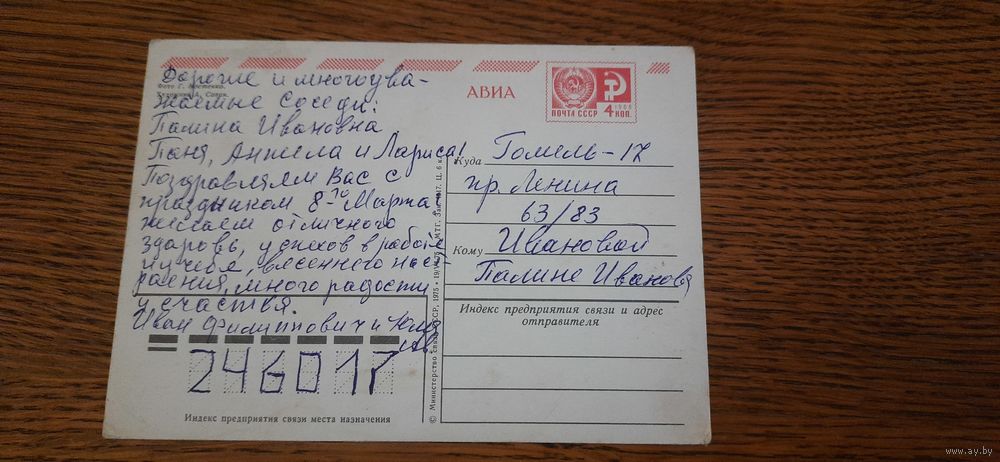 Дорогие и многоува-
Фото Г. Костенко.
жаемые соседи:
Палина Ивановна
Паня, Анжела и Лариса!
Поздравляем Вас с
праздником 8-го Марта
желаем отличного
здаровь, успехов в работе
и учебе, весеннего наст-
раения, много радости
и счастья.
Иван Филиппович и
АВИА
ПОЧТА СССР
1966
4 КОП.
Куда Гомель-17
пр. Ленина
63/83
Кому Ивановой
Палине Ивановн
Индекс предприятия связи и адрес
отправителя
246017
Индекс предприятия связи места назначения
© Министерство связи СССР, 1975
www.ay.by